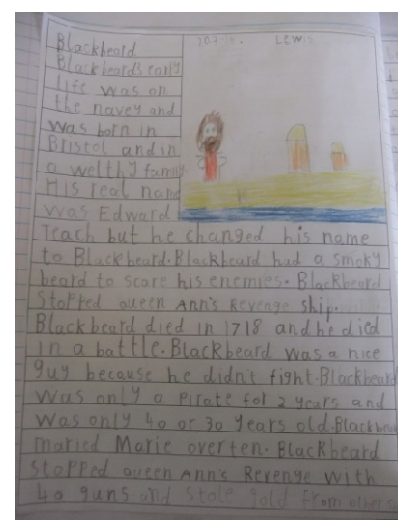 Blackbeard
Blackbeards early
life was on
the navey and
was born in
Bristol and in
a welthy family.
His real name
was Edward
Teach but he changed his name
to Blackbeard. Blackbeard had a smoky
beard to scare his enemies. Blackbeard
stopped queen Ann's Revenge ship.
Blackbeard died in 1718 and he died
in a battle. Blackbeard was a nice
guy because he didn't fight. Blackbeard
was only a pirate for 2 years and
was only 40 or 30 years old. Blackbeard
maried Marie overten. Blackbeard
stopped queen Ann's Revenge with
40 guns and stole gold from others
Lewis